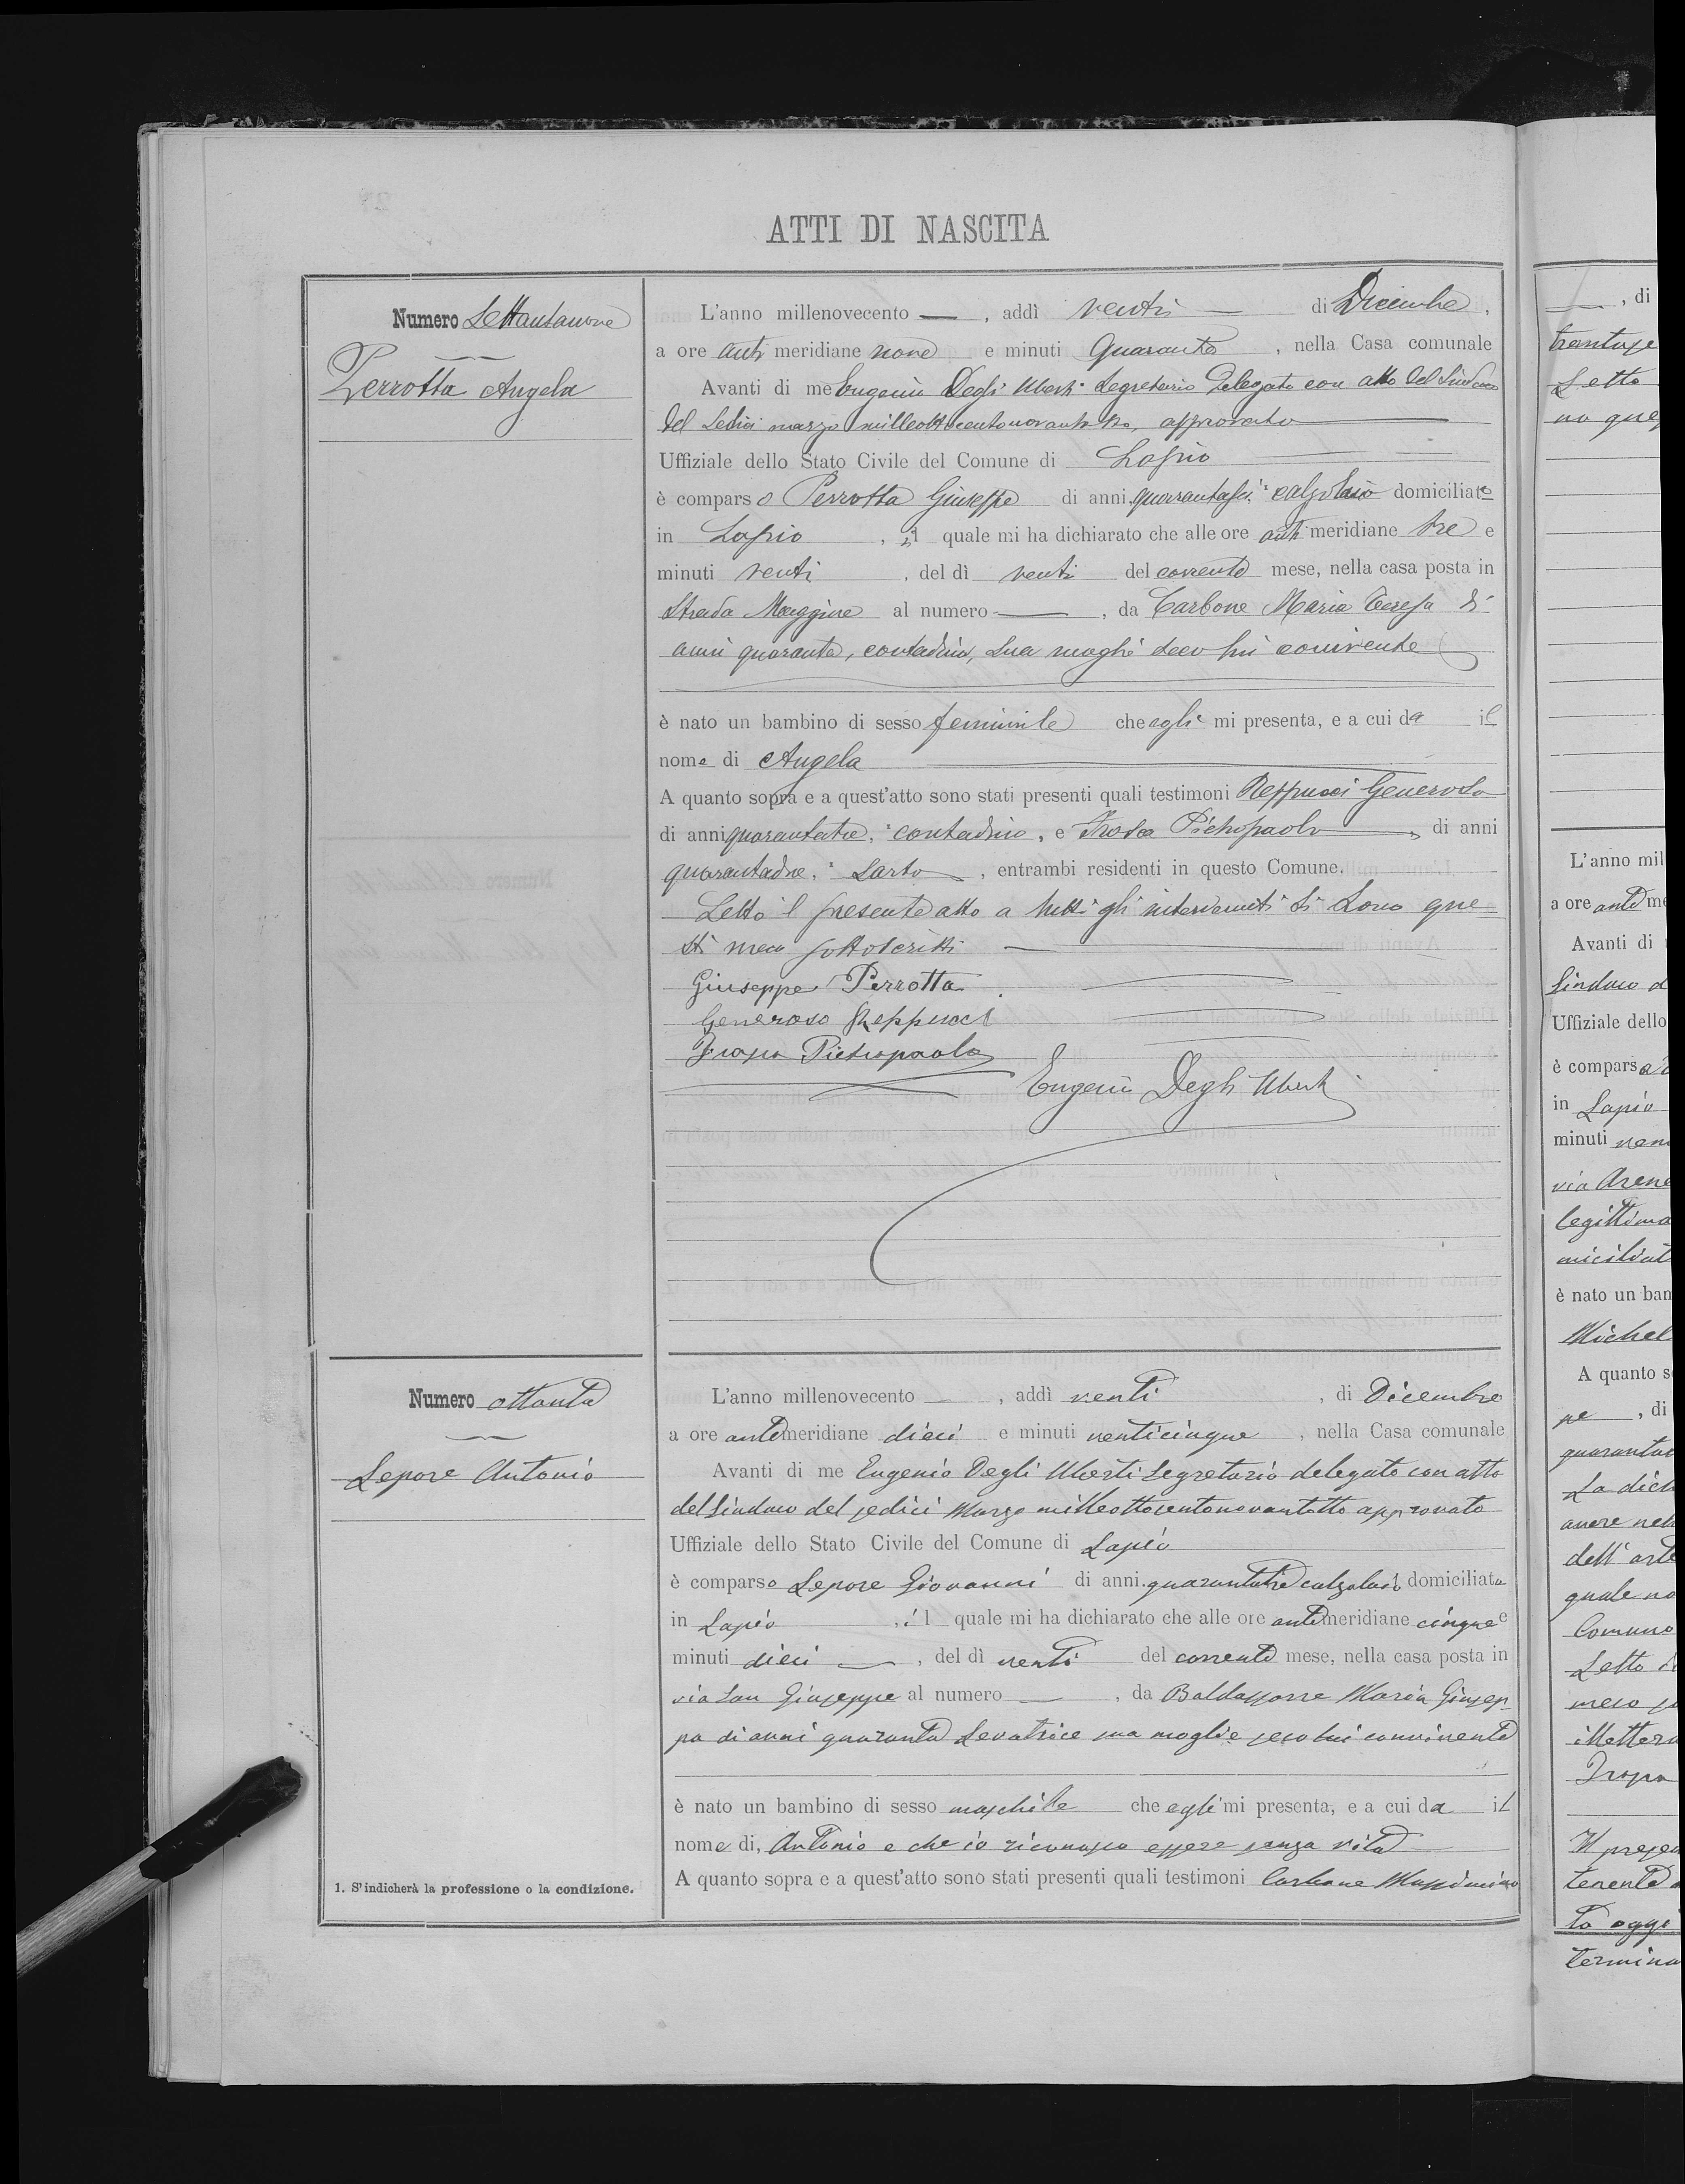 ATTI DI NASCITA
Numero Settantanove
Perrotta Angela
L'anno millenovecento — , addì venti — di Dicembre,
a ore anti meridiane nove e minuti quaranta , nella Casa comunale
Avanti di me Eugenio Degli Uberti Segretario Delegato con atto del Sindaco
del sedici marzo milleottocentonovantotto, approvato
Uffiziale dello Stato Civile del Comune di Lapio
è comparso Perrotta Giuseppe di anni quarantasei, calzolaio domiciliato
in Lapio , il quale mi ha dichiarato che alle ore anti meridiane tre e
minuti venti , del dì venti del corrente mese, nella casa posta in
Strada Maggiore al numero — , da Carbone Maria Teresa di
anni quaranta, contadina, sua moglie seco lui convivente
è nato un bambino di sesso feminile che egli mi presenta, e a cui da il
nome di Angela
A quanto sopra e a quest'atto sono stati presenti quali testimoni Reppucci Generoso
di anni quarantatre, contadino, e Trosa Pietropaolo , di anni
quarantadue, sarto , entrambi residenti in questo Comune.
Letto il presente atto a tutti gli intervenuti si sono que
sti meco sottoscritti
Giuseppe Perrotta
Generoso Reppucci
Pietropaolo
Eugenio Degli Uberti
Numero ottanta
Lepore Antonio
L'anno millenovecento — , addì venti , di Dicembre
a ore antimeridiane dieci e minuti venticinque , nella Casa comunale
Avanti di me Eugenio Degli Uberti Segretario delegato con atto
del Sindaco del sedici Marzo milleottocentonovantotto approvato
Uffiziale dello Stato Civile del Comune di Lapio
è comparso Lepore Giovanni di anni quarantatre calzolaio domiciliato
in Lapio , il quale mi ha dichiarato che alle ore antimeridiane cinque e
minuti dieci — , del dì venti del corrente mese, nella casa posta in
via San Giuseppe al numero — , da Baldassarre Maria Giusep-
pa di anni quaranta Levatrice sua moglie seco lui convivente
è nato un bambino di sesso maschile che egli mi presenta, e a cui da il
nome di, Antonio e che io riconosco essere senza vita
A quanto sopra e a quest'atto sono stati presenti quali testimoni Carbone Massimino
1. S'indicherà la professione o la condizione.
, di
Letto
L'anno mil
a ore ante me
Avanti di
Sindaco d
Uffiziale dello
è compars a
in Lapio
minuti ven
via Arene
legittima
miciliat
è nato un ban
Michel
A quanto s
pe , di
quarantac
La dich
avere
dell' arte
quale no
Comune
Letto
meco
illettera
tenente
to oggi
termina